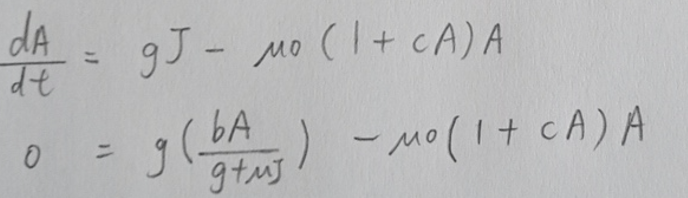 dA/dt = gJ - μ0 (1 + cA) A
0 = g(bA/(g+μJ)) - μ0(1 + cA) A